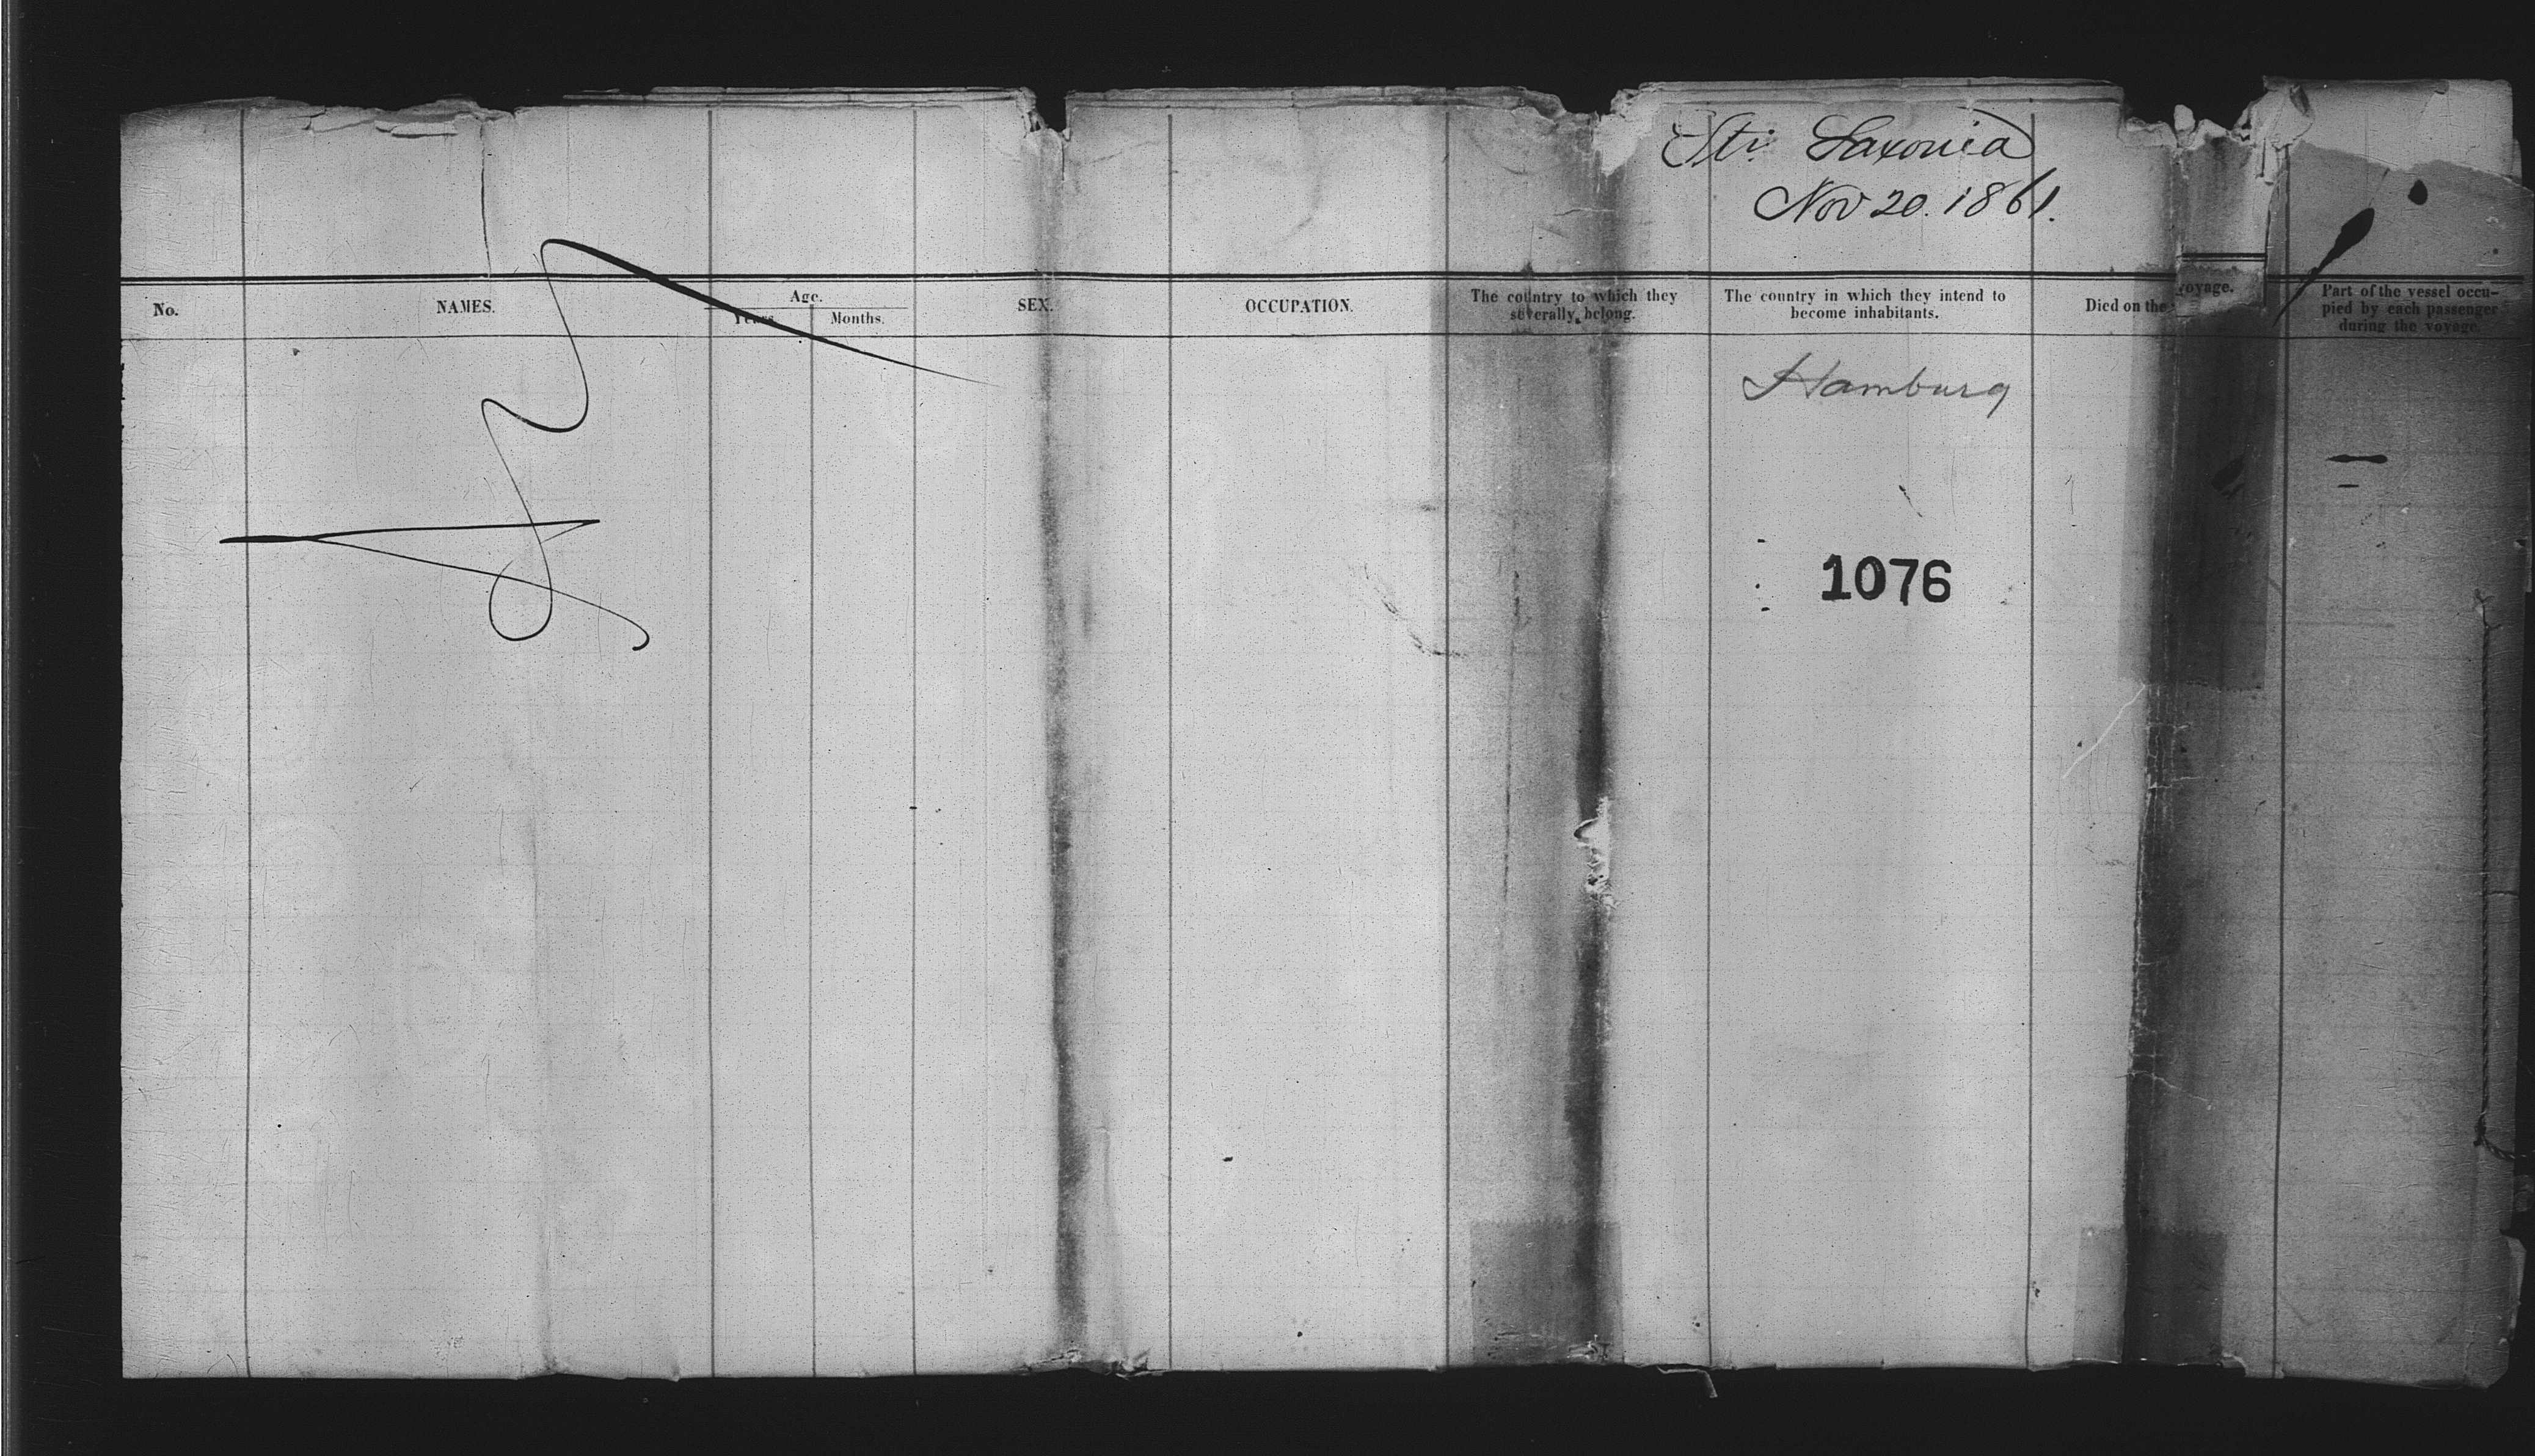 Str. Saxonia
Nov 20. 1861.
No.
NAMES.
Age.
Years
Months.
SEX.
OCCUPATION.
The country to which they
severally belong.
The country in which they intend to
become inhabitants.
Died on the voyage.
Part of the vessel occu-
pied by each passenger
during the voyage.
Hamburg
1076